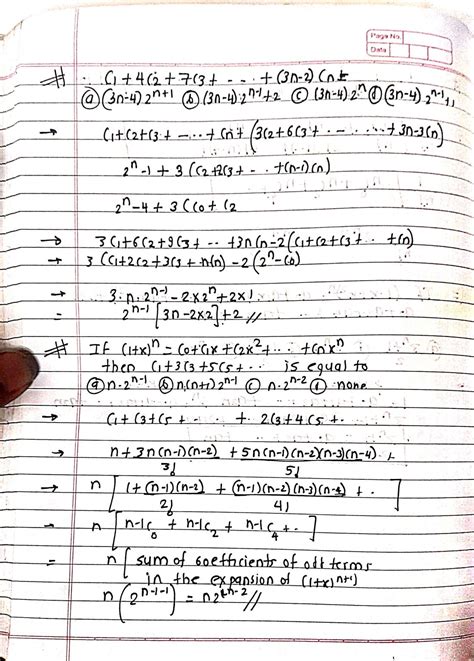 Page No.
Date
C1+4C2+7C3+ - - - + (3n-2) Cn =
(a) (3n-4) 2^n+1 (b) (3n-4) 2^n-1+2 (c) (3n-4) 2^n (d) (3n-4) 2^n-1+1
→ C1+C2+C3+ - - - + Cn + (3C2+6C3+ - - - - - + 3n-3Cn)
2^n-1+3 (C2+2C3+ - - +(n-1)Cn)
2^n-4+3 (C0+C2
→ 3C1+6C2+9C3+ - - +3nCn-2(C1+C2+C3+ - - +Cn)
→ 3 (C1+2C2+3C3+ - - nCn) -2 (2^n-C0)
→ 3·n·2^n-1-2×2^n+2×1
= 2^n-1 [3n-2×2]+2 //
If (1+x)^n = C0+C1x+C2x^2+ - - +Cnx^n
then C1+3C3+5C5+ - - is equal to
(a) n·2^n-1 (b) n(n+1) 2^n-1 (c) n·2^n-2 (d) none
→ C1+C3+C5+ - - - + 2C3+4C5+ -
→ n+3n(n-1)(n-2)/3! + 5n(n-1)(n-2)(n-3)(n-4)/5! +
→ n [1+(n-1)(n-2)/2! + (n-1)(n-2)(n-3)(n-4)/4! + - ]
- n [n-1C0 + n-1C2 + n-1C4 + - - ]
= n [sum of coefficients of odd terms
in the expansion of (1+x)^n+1)
n (2^n-1-1) = n2^n-2 //